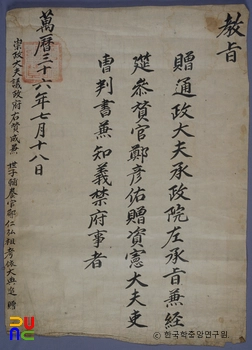 教旨
贈通政大夫承政院左承旨兼經
筵參贊官鄭彦佑贈資憲大夫吏
曹判書兼知義禁府事者
萬曆三十六年七月十八日
崇政大夫議政府右贊成兼 世子貳師鄭仁弘祖考依大典追 贈
ⓒ한국학중앙연구원